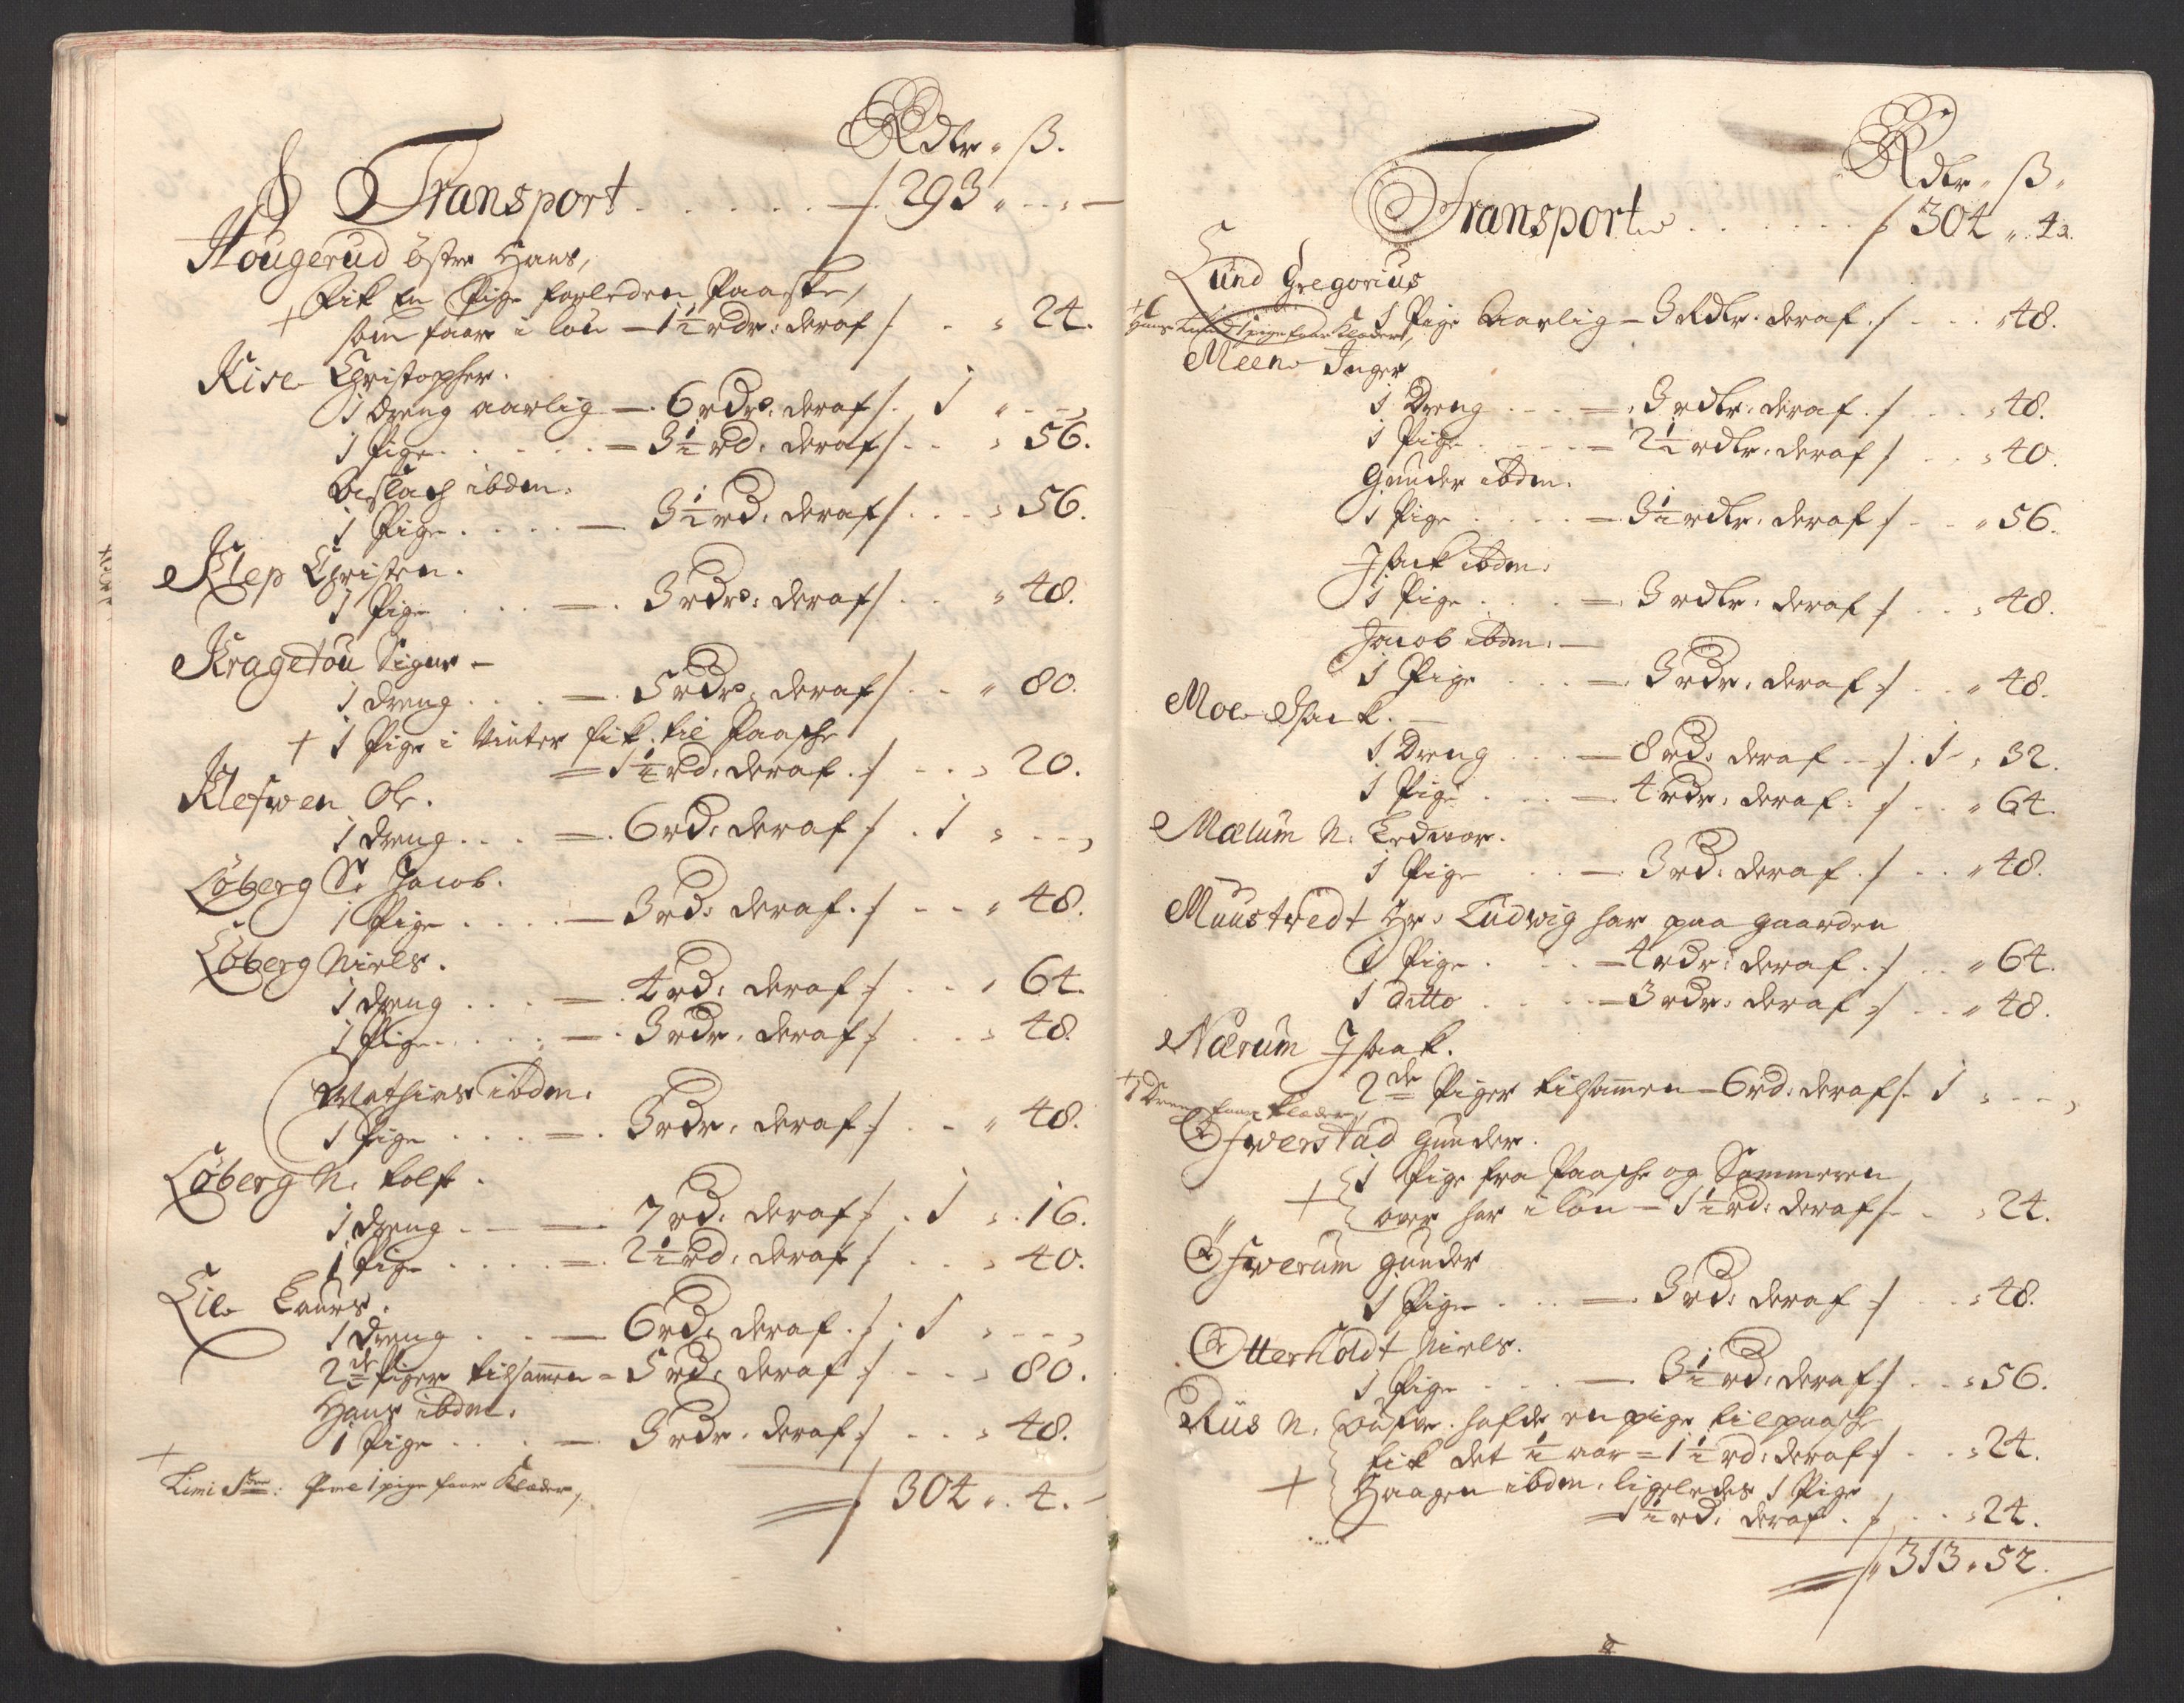 Rdlr. ß.
Transport . . . . . . – 293 „ – „ –
Hougerud östre Hans,
+ Fik En Pige forleden Paaske,
som faar i lön – 1½ rdr: deraf . . „ 24.
Rise Christopher.
1 dreng aarlig – 6 rdr: deraf . 1 „ – „
1 Pige . . . . . = 3½ rd: deraf . . „ 56.
Aslach ibdm:
1 Pige . . . . – 3½ rd: deraf . . . „ 56.
Klep Christen.
1 Pige . . . = 3 rdr: deraf . . „ 48.
Kragetou Sigur –
1 dreng . . . = 5 rdr: deraf . . „ 80.
+ 1 Pige i Vinter fik til Paasche
= 1¼ rd: deraf . . . „ 20.
Klefwen Ole.
1 dreng . . . = 6 rd: deraf . 1 „ – „
Löberg S: Jacob.
1 Pige . . . . – 3 rd: deraf . . . „ 48.
Löberg Niels.
1 dreng . . . = 4 rd: deraf . . . „ 64.
1 Pige . . . . . = 3 rdr: deraf . . . „ 48.
Mathias ibdm:
1 Pige . . . = 3 rdr: deraf . . „ 48.
Löberg N: Rolf.
1 dreng . . . = 7 rd: deraf . 1 „ 16.
1 Pige . . . . = 2½ rd: deraf . . . „ 40.
Lie Laurs.
1 dreng . . – 6 rd: deraf . 1 „ – „
2de Piger tilsamen = 5 rd: deraf . . . „ 80.
Hans ibdm:
1 Pige . . . = 3 rdr: deraf . . . „ 48.
+ 1 pige faar Klæder,
304 „ 4. –
Rdlr. ß.
Transport . . . . . . 304 „ 4.
Lund Gregorius
1 Pige Aarlig – 3 Rdlr. deraf . . . „ 48.
+ Hans Lund 1 pige faar Klæder,
Meen Inger
1 Dreng . . . = 3 rdlr: deraf . . . „ 48.
1 Pige . . . . = 2½ rdlr: deraf . . . „ 40.
Gunder ibdm.
1 Pige . . . . = 3½ rdlr: deraf . . „ 56.
Isack ibdm:
1 Pige . . . = 3 rdlr: deraf . . . „ 48.
Jacob ibdm: –
1 Pige . . . = 3 rdr: deraf . . „ 48.
Moe Isack. –
1 Dreng . . . – 8 rd: deraf . . 1 „ 32.
1 Pige . . . – 4 rdr: deraf . . „ 64.
Mælum N:
1 Pige . . – 3 rd: deraf . . . „ 48.
Muustvedt Hr: Ludwig har paa gaarden
1 Pige . . . – 4 rdr: deraf . . . „ 64.
1 ditto . . . – 3 rdr: deraf . . „ 48.
Nærum Isaak.
2de Piger tilsamen – 6 rd: deraf . 1 „ – „
+ 1 Dreng faar Klæder,
Ofwerstad Gunder.
+ 1 Pige fra Paasche og Sommeren
over har i lön – 1½ rd: deraf . . „ 24.
Öfwerum Gunder
1 Pige . . . = 3 rd: deraf . . . „ 48.
Otterholdt Niels.
1 Pige . . . – 3½ rd: deraf . . . „ 56.
Riis N: hafde en pige til paasche
fik det ½ aar = 1½ rd: deraf . . . „ 24.
+ Haagen ibdm: ligeledes 1 Pige
= 1½ rd: deraf . . . „ 24.
313 „ 52.